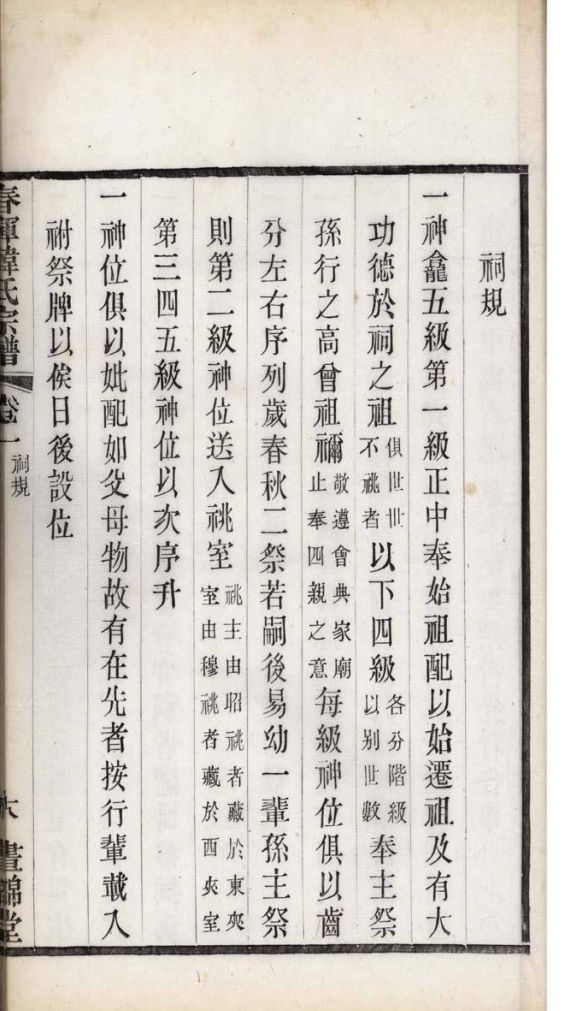 祠規
一神龕五級第一級正中奉始祖配以始遷祖及有大
功德於祠之祖俱世世不祧者以下四級各分階級以别世數奉主祭
孫行之高曾祖禰敬遵會典家廟止奉四親之意每級神位俱以齒
分左右序列歲春秋二祭若嗣後易幼一輩孫主祭
則第二級神位送入祧室祧主由昭祧者藏於東夾室由穆祧者藏於西夾室
第三四五級神位以次序升
一神位俱以妣配如父母物故有在先者按行輩載入
祔祭牌以俟日後設位
春暉韓氏宗譜 卷一 祠規 晝錦堂